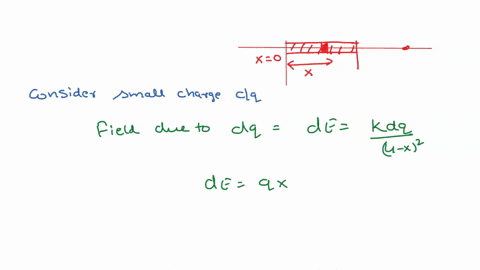 x=0
x
Consider small charge dq
Field due to dq = dE = Kdq/(4-x)²
dE = qx